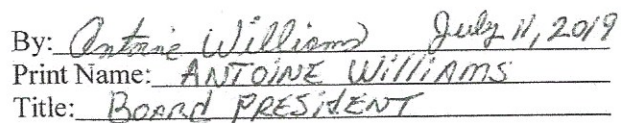 By: Antoine Williams July 11, 2019
Print Name: ANTOINE WilliAMS
Title: BOARD PRESIdENT